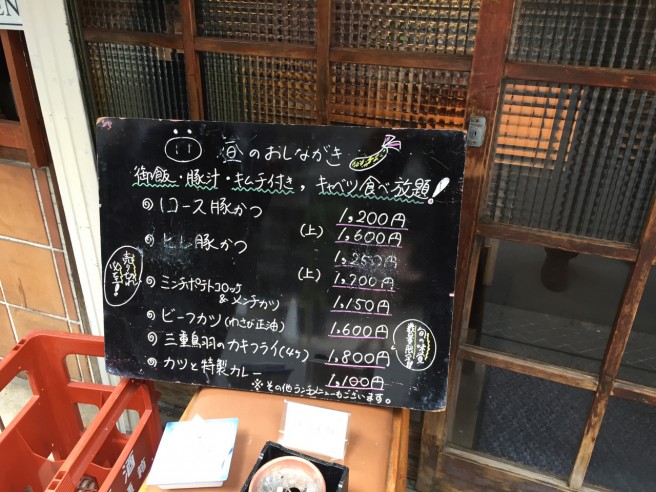 EN
旬のおしながき
御飯・豚汁・キムチ付き，キャベツ食べ放題！
ロース豚かつ 1,200円
(上) 1,600円
ヒレ豚かつ 1,250円
(上) 1,700円
ミンチポテトコロッケ
&メンチカツ 1,150円
ビーフカツ(わさび正油) 1,600円
三重鳥羽のカキフライ(4ケ) 1,800円
カツと特製カレー 1,100円
※その他ランチメニューもございます。
売り切れ
必至!
旬の味覚